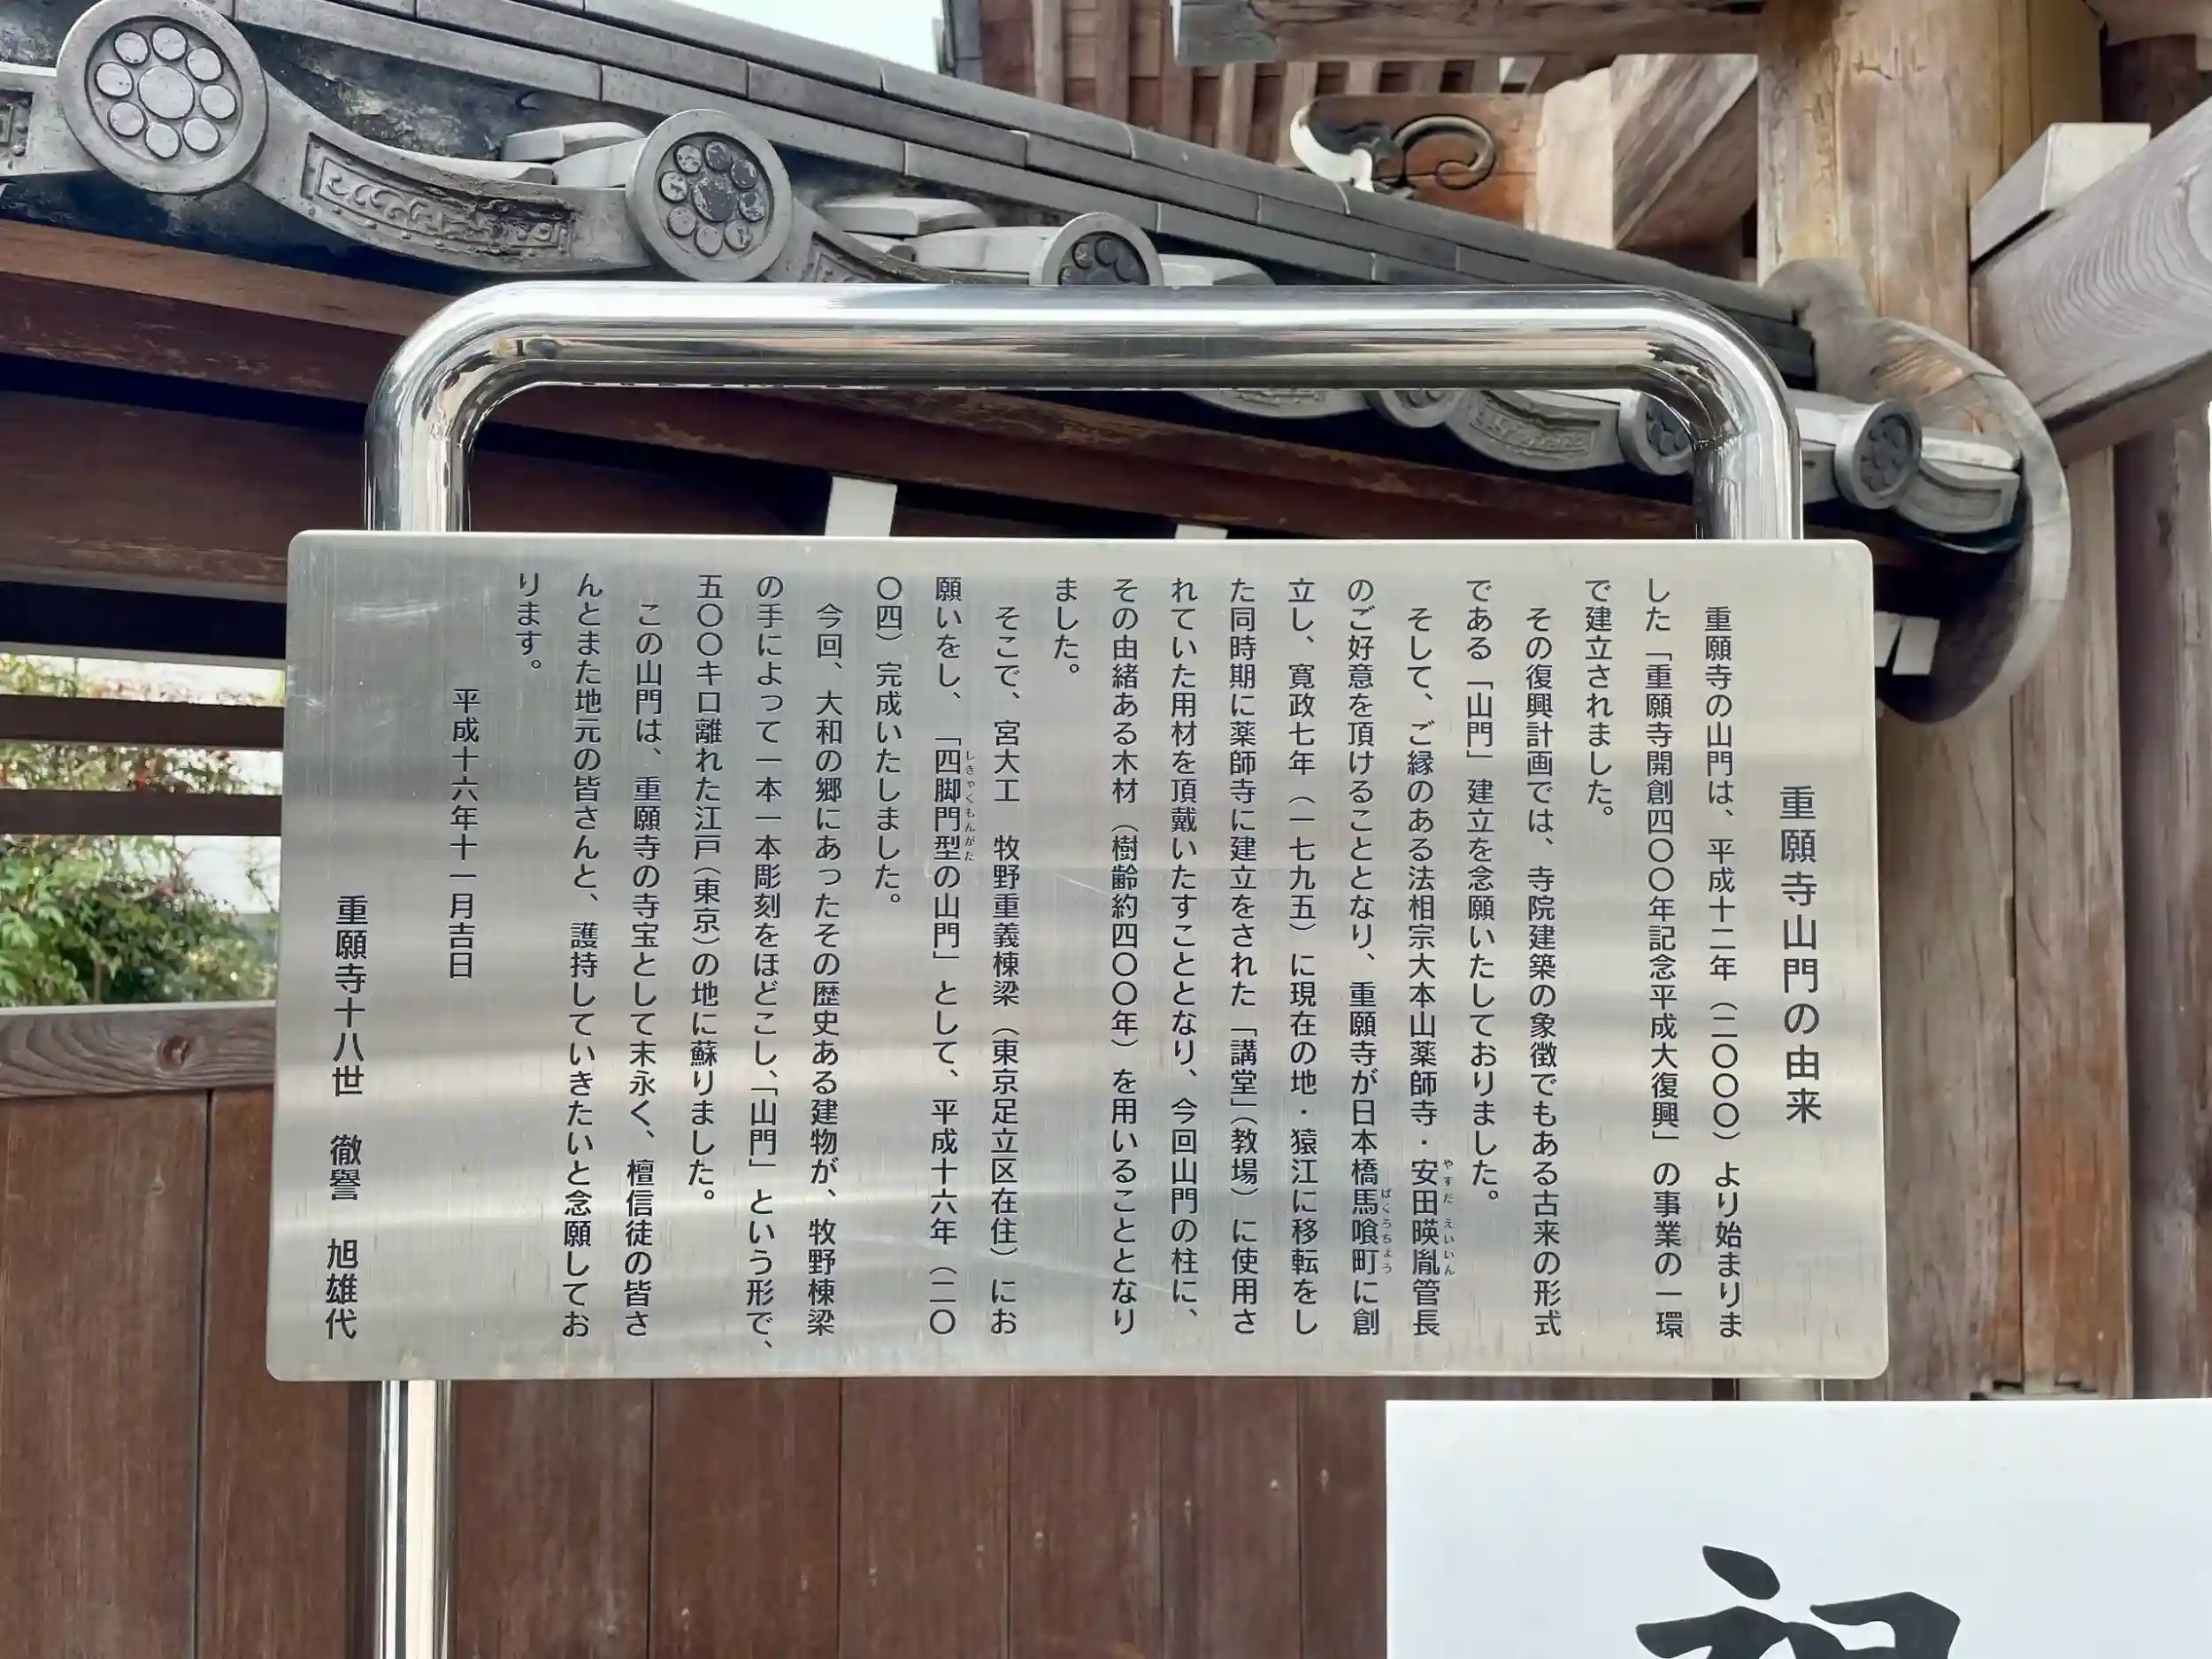 重願寺山門の由来
重願寺の山門は、平成十二年（二〇〇〇）より始まりま
した「重願寺開創四〇〇年記念平成大復興」の事業の一環
で建立されました。
その復興計画では、寺院建築の象徴でもある古来の形式
である「山門」建立を念願いたしておりました。
そして、ご縁のある法相宗大本山薬師寺・安田暎胤管長
やすだ えいいん
のご好意を頂けることとなり、重願寺が日本橋馬喰町に創
ばくろちょう
立し、寛政七年（一七九五）に現在の地・猿江に移転をし
た同時期に薬師寺に建立をされた「講堂」（教場）に使用さ
れていた用材を頂戴いたすこととなり、今回山門の柱に、
その由緒ある木材（樹齢約四〇〇年）を用いることとなり
ました。
そこで、宮大工　牧野重義棟梁（東京足立区在住）にお
願いをし、「四脚門型の山門」として、平成十六年（二〇
しきゃくもんがた
〇四）完成いたしました。
今回、大和の郷にあったその歴史ある建物が、牧野棟梁
の手によって一本一本彫刻をほどこし、「山門」という形で、
五〇〇キロ離れた江戸（東京）の地に蘇りました。
この山門は、重願寺の寺宝として末永く、檀信徒の皆さ
んとまた地元の皆さんと、護持していきたいと念願してお
ります。
平成十六年十一月吉日
重願寺十八世　徹譽　旭雄代